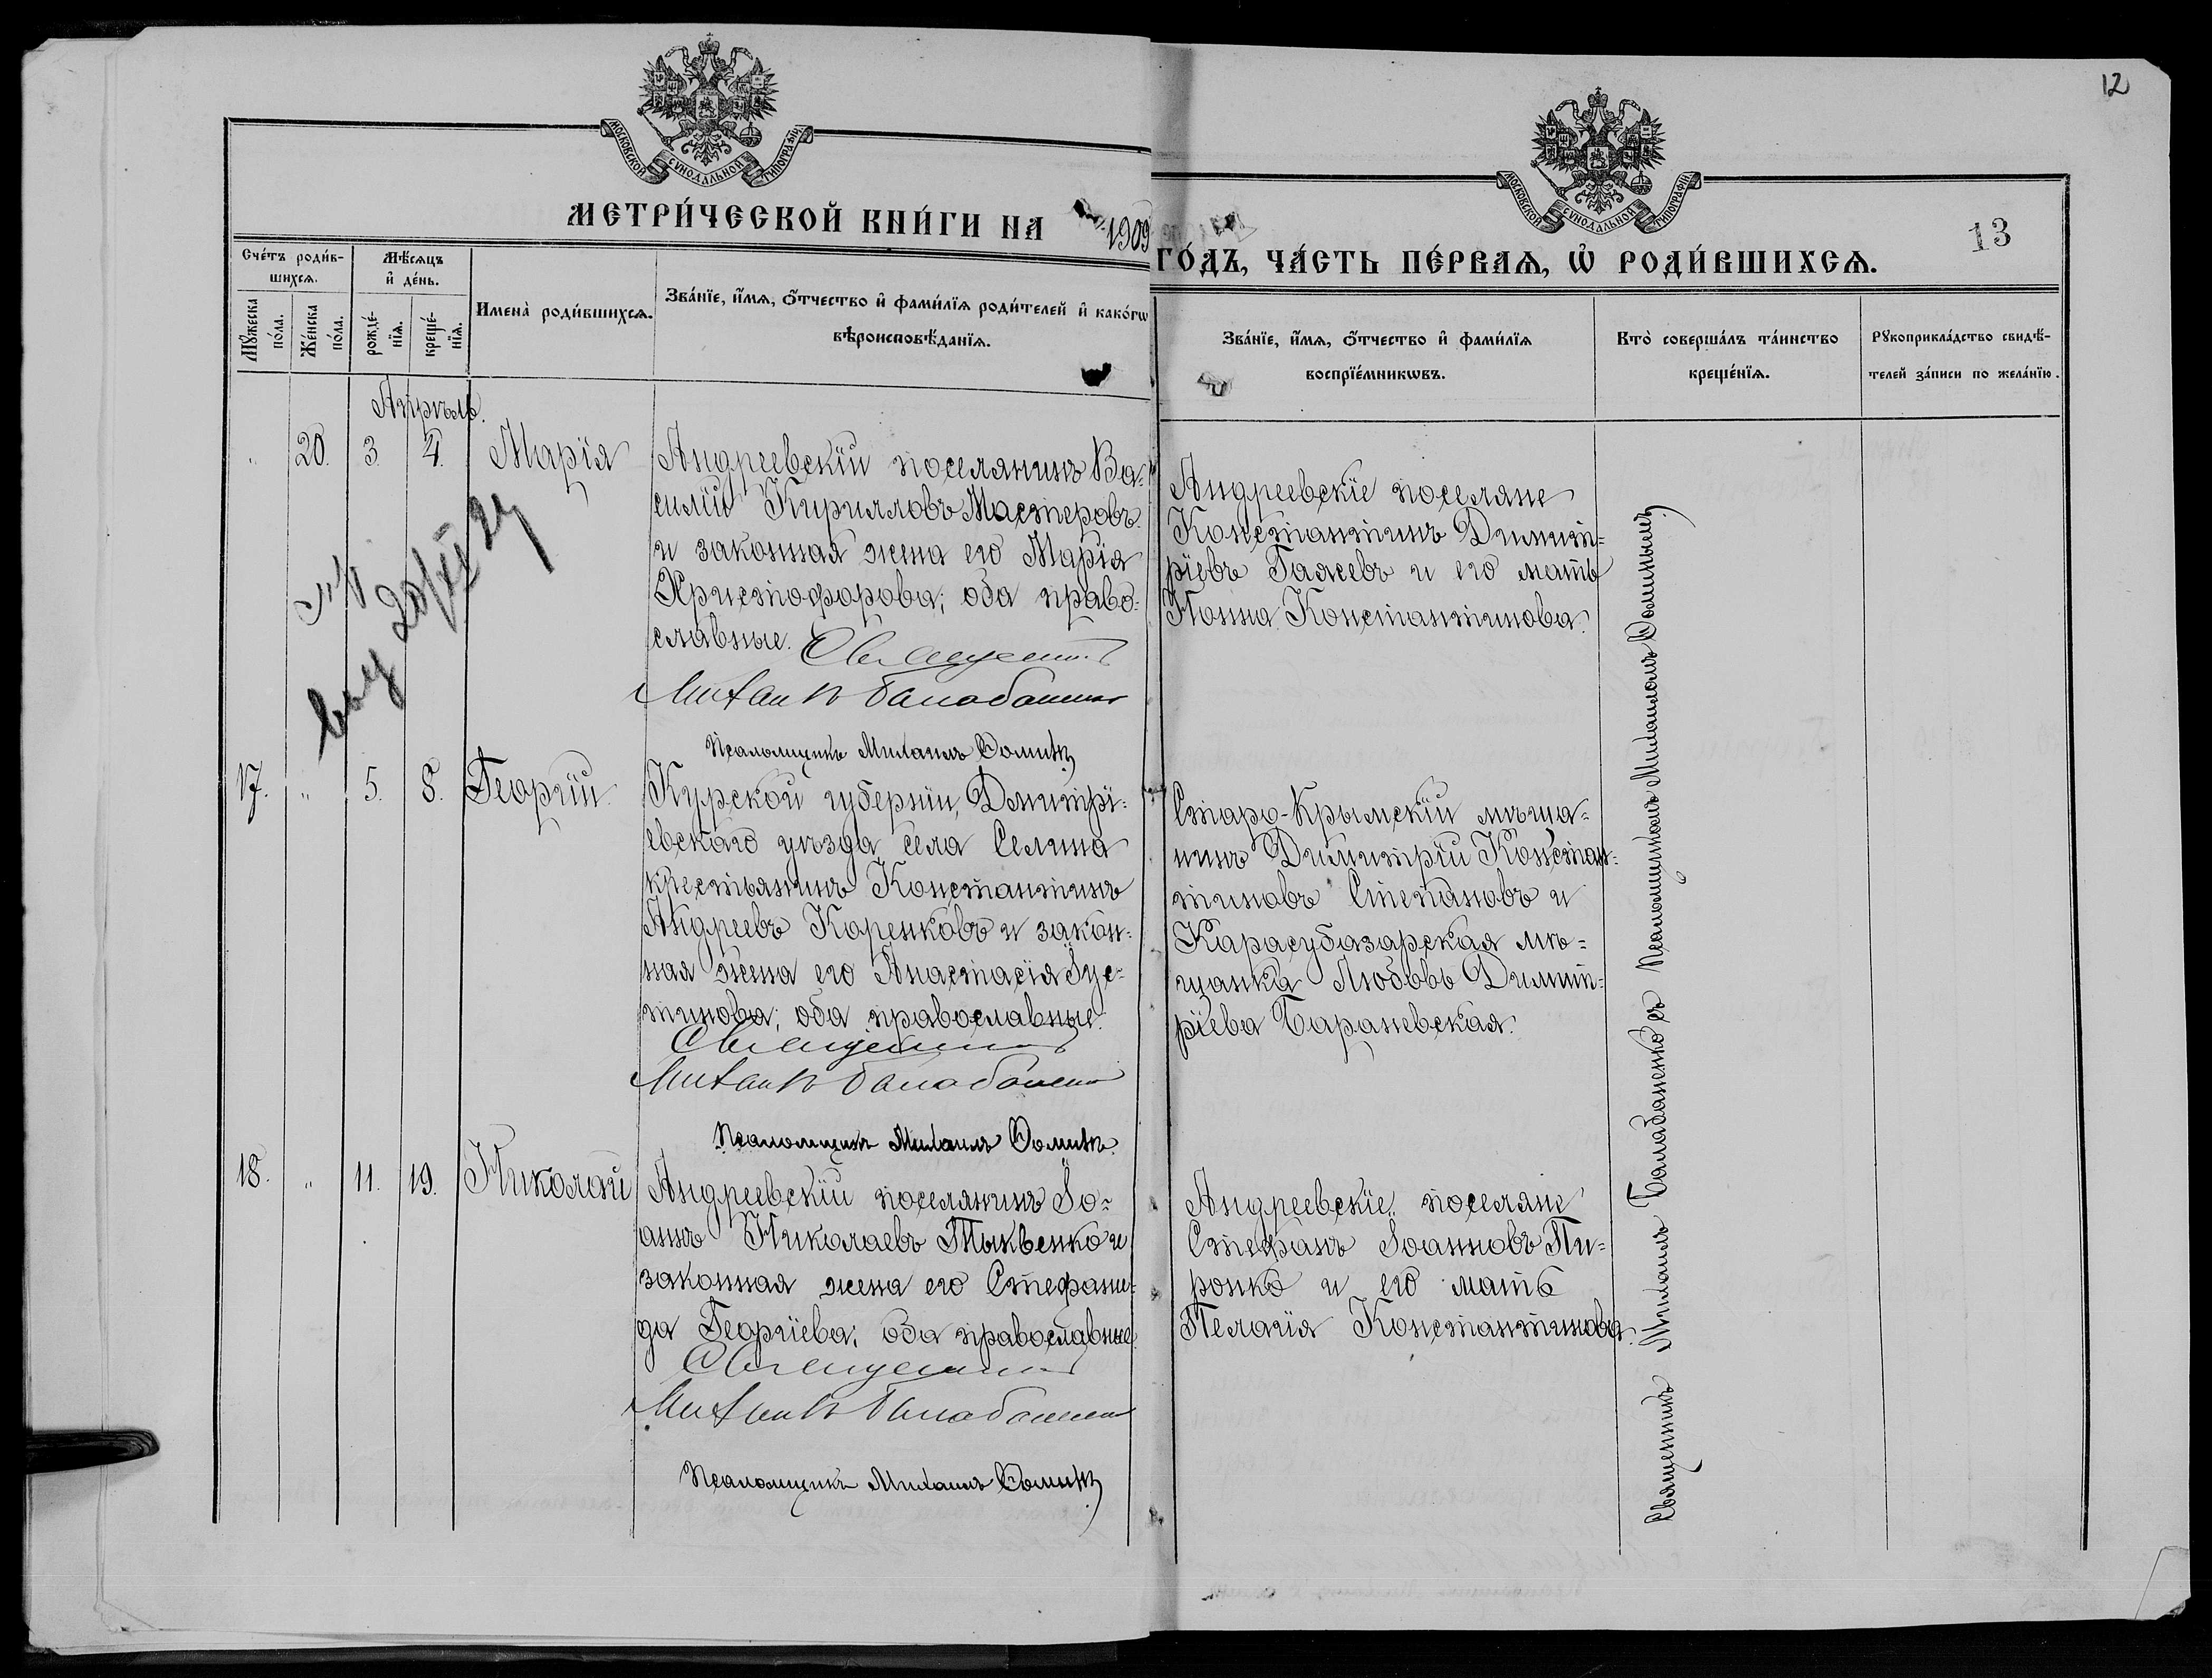 12
МОСКОВСКОЙ СѴНОДАЛЬНОЙ ТИПОГРАФІИ
МОСКОВСКОЙ СѴНОДАЛЬНОЙ ТИПОГРАФІИ
13
МЕТРИ́ЧЕСКОЙ КНИ́ГИ НА 1909
ГО́ДЪ, ЧА́СТЬ ПЕ́РВАѦ, Ѡ҆ РОДИ́ВШИХСѦ.
Сче́тъ роди́в-
шихсѧ.
Мꙋ́жеска
по́ла.
Же́нска
по́ла.
Мѣ́сѧцъ
и҆ де́нь.
рожде́-
нїѧ.
креще́-
нїѧ.
Имена̀ роди́вшихсѧ.
Зва́нїе, и҆́мѧ, ѻ҆́тчество и҆ фами́лїѧ роди́телей и҆ како́гѡ
вѣроисповѣ́данїѧ.
Зва́нїе, и҆́мѧ, ѻ҆́тчество и҆ фами́лїѧ
воспрїе́мникѡвъ.
Кто̀ соверша́лъ та́инство
креще́нїѧ.
Рꙋкоприкла́дство свидѣ́-
телей за́писи по жела́нїю.
Апрѣль.
" 20. 3. 4. Марія
Андреевскій поселянинъ Ва=
силій Кирилловъ Мастеровъ
и законная жена его Марія
Христофорова; оба право=
славные. Священникъ
Михаилъ Балабаненко
Псаломщикъ Михаилъ Ѳоминъ
Андреевскіе поселяне
Константинъ Димит=
ріевъ Гаяевъ и его мать
Нонна Константинова.
выд
17. " 5. 8. Георгій
Курской губерніи, Дмитрі=
евскаго уѣзда, села Селина
крестьянинъ Константинъ
Андреевъ Каренковъ и закон=
ная жена его Анастасія Іус=
тинова; оба православные.
Священникъ
Михаилъ Балабаненко
Псаломщикъ Михаилъ Ѳоминъ
Старо-Крымскій мѣща=
нинъ Димитрій Констан=
тиновъ Степановъ и
Карасубазарская мѣ=
щанка Любовь Димит=
ріева Барановская.
18. " 11. 19. Николай
Андреевскій поселянинъ Іо=
аннъ Николаевъ Тыквенко и
законная жена его Стефани=
да Георгіева; оба православные.
Священникъ
Михаилъ Балабаненко
Псаломщикъ Михаилъ Ѳоминъ
Андреевскіе поселяне
Стефанъ Іоанновъ Пи=
ронко и его мать
Пелагія Константинова.
Священникъ Михаилъ Балабаненко съ Псаломщикомъ Михаиломъ Ѳоминымъ